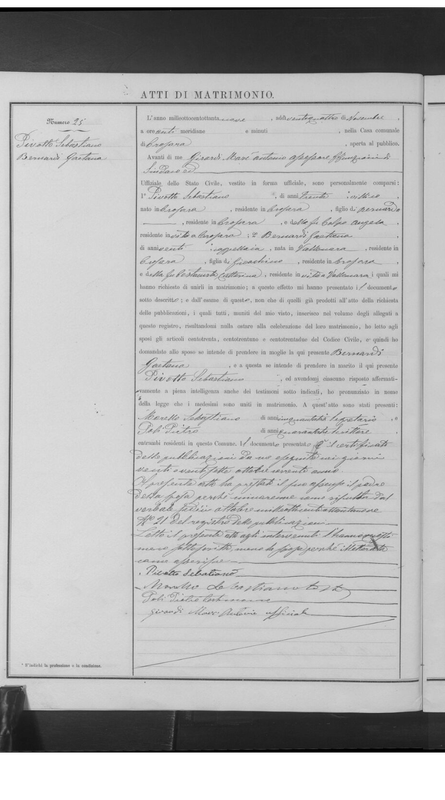 ATTI DI MATRIMONIO.
Numero 25
Pivotto Sebastiano
Bernardi Gaetana
L'anno milleottocentottantanove, addì ventiquattro di Novembre,
a ore venti meridiane e minuti, nella Casa comunale
di Crosara, aperta al pubblico.
Avanti di me Girardi Marc'Antonio Assessore
Uffiziale dello Stato Civile, vestito in forma ufficiale, sono personalmente comparsi:
1° Pivotto Sebastiano, di anni trenta, villico
nato in Crosara, residente in Crosara, figlio di
, residente in Crosara, e della fu Angela,
residente in vita a Crosara; 2° Bernardi Gaetana
di anni venti, cappellaia, nata in Vallonara, residente in
Crosara, figlia di Gioachino, residente in Crosara,
e della fu Caterina, residente in vita a Vallonara; i quali mi
hanno richiesto di unirli in matrimonio; a questo effetto mi hanno presentato il documento
sotto descritto; e dall'esame di questo, non che di quelli già prodotti all'atto della richiesta
delle pubblicazioni, i quali tutti, muniti del mio visto, inserisco nel volume degli allegati a
questo registro, risultandomi nulla ostare alla celebrazione del loro matrimonio, ho letto agli
sposi gli articoli centotrenta, centotrentuno e centotrentadue del Codice Civile, e quindi ho
domandato allo sposo se intende di prendere in moglie la qui presente Bernardi
Gaetana, e a questa se intende di prendere in marito il qui presente
Pivotto Sebastiano, ed avendomi ciascuno risposto affermati-
vamente a piena intelligenza anche dei testimoni sotto indicati, ho pronunziato in nome
della legge che i medesimi sono uniti in matrimonio. A quest'atto sono stati presenti:
Morello Sebastiano, di anni cinquantotto, e
Poli Pietro, di anni quarantotto, scrittore
entrambi residenti in questo Comune. Il documento presentato è il certificato
delle pubblicazioni da me eseguite nei giorni
venti e ventisette ottobre corrente anno
Al presente atto ha prestato il suo assenso il padre
della sposa perchè minorenne come risulta dal
verbale ottobre milleottocentottantanove
N° 21 del registro delle pubblicazioni
Letto il presente atto agli intervenuti l'hanno
meco sottoscritto, meno la sposa perchè illetterata
come asserisce
Pivotto Sebastiano
Morello Sebastiano test
Poli Pietro testimonio
Girardi Marc'Antonio ufficiale
* S'indichi la professione o la condizione.